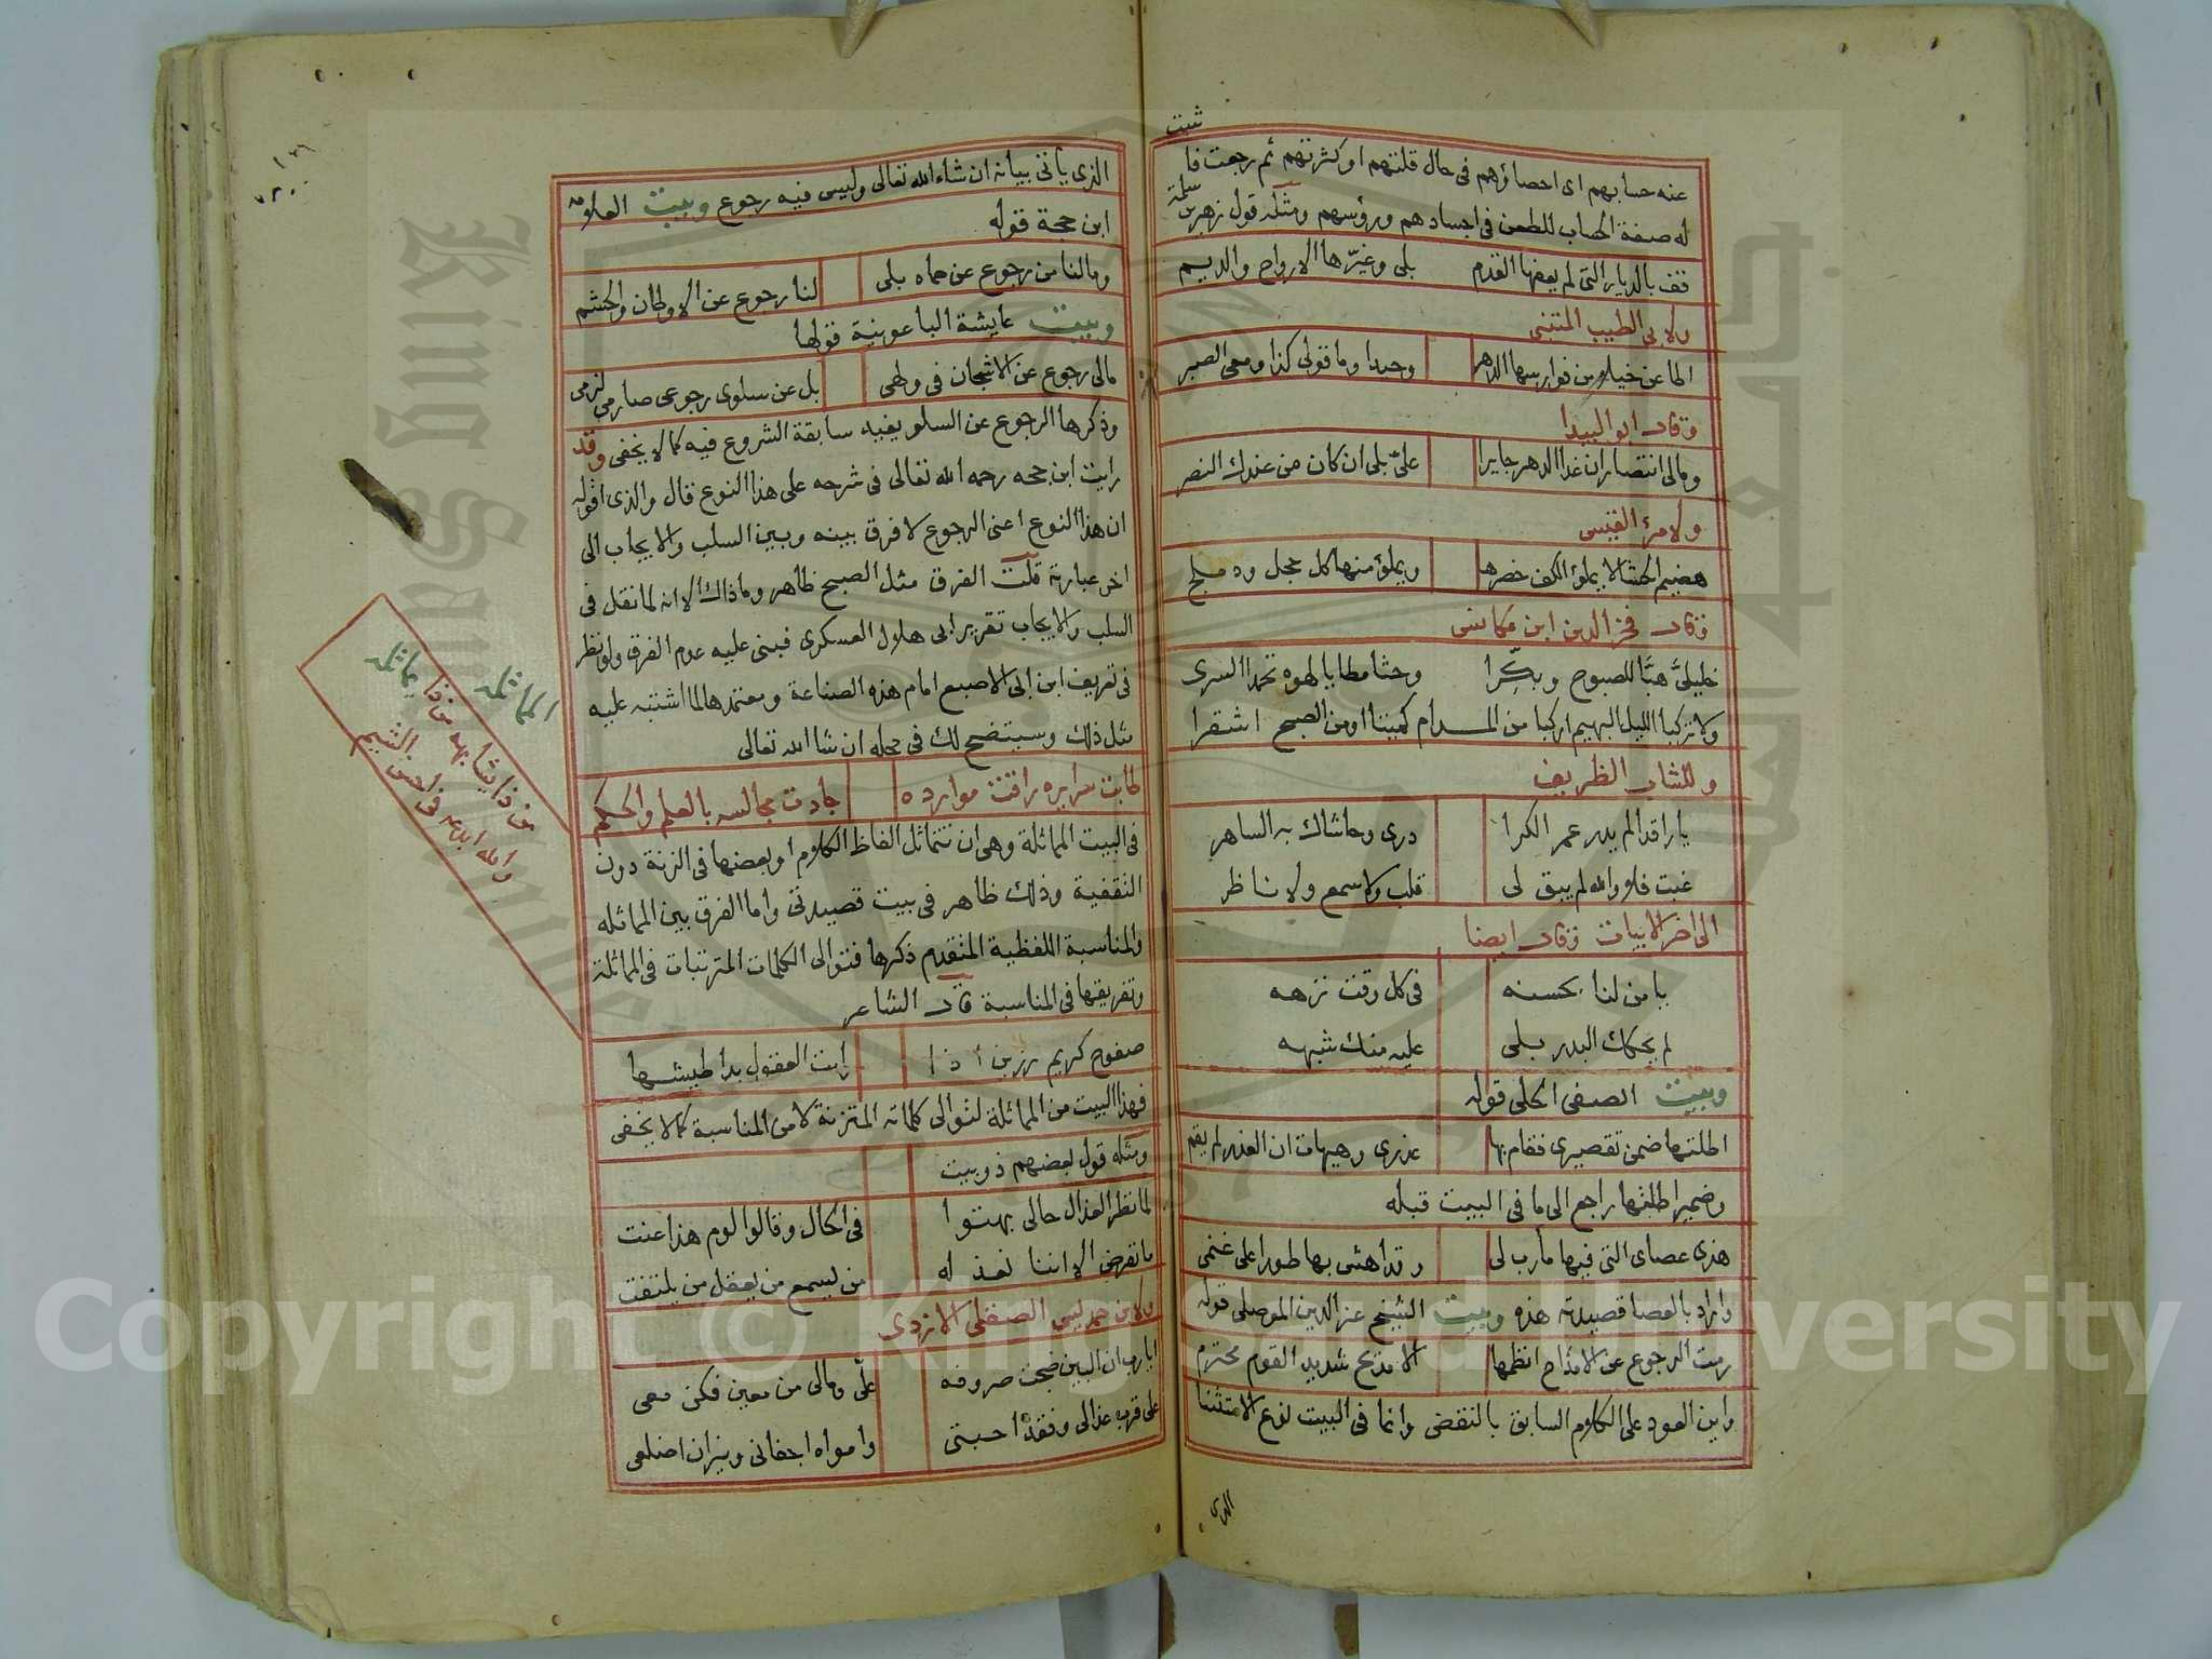 ثبت
عنه حسابهم اى احصاؤهم فى حال قلتهم او كثرتهم ثم رجعت فا
له صفة الحساب للطعن فى اجسادهم ورؤسهم ومثله قول زهير بن سلمة
قف بالديار التى لم يعفها القدم بلى وغيّرها الارواح والديم
ولابى الطيب المتنبى
اطاعن خيلا من فوارسها الدهر وحيدا وما قولى كذا ومعى الصبر
وقال ابو البيدا
ومالى انتصار ان غدا الدهر جايرا علىّ بلى ان كان من عندك النصر
ولامرئ القيس
هضيم الحشا لا يملؤ الكف خصرها ويملؤ منها كل حجل ودملج
وقال فخر الدين ابن مكانس
خليلىّ هبّا للصبوح وبكّرا وحثا مطايا لهوه تحمدا السرى
ولا تركبا الليل البهيم اركبا من المدام كميتا او من الصبح اشقرا
وللشاب الظريف
يا راقدا لم يدر عمر الكرا درى وحاشاك به الساهر
غبت فلا والله لم يبق لى قلب ولا سمع ولا ناظر
الى اخر الابيات وقال ايضا
يا من لنا بحسنه فى كل وقت نزهه
لم يحكك البدر بلى عليه منك شبهه
وبيت الصفى الحلى قوله
اطلتها ضمن تقصيرى فقام بها عذرى وهيهات ان العذر لم يقم
وضمير اطلتها راجع الى ما فى البيت قبله
هذى عصاى التى فيها مآرب لى وقد اهش بها طورا على غنمى
واراد بالعصا قصيدته هذه وبيت الشيخ عز الدين الموصلى قوله
رمت الرجوع عن الامداح انظمها الا مديح شديد القوم محترم
واين العود على الكلام السابق بالنقض وانما فى البيت نوع الاستثنا
الذى
الذى يأتى بيانه ان شاء الله تعالى وليس فيه رجوع وبيت العلامة
ابن حجة قوله
ومالنا من رجوع عن حماه بلى لنا رجوع عن الاوطان والحشم
وبيت عايشة الباعونية قولها
مالى رجوع عن الاشجان فى ولهى بل عن سلوى رجوعى صار من لزمى
وذكرها الرجوع عن السلو يفيد سابقة الشروع فيه كما لا يخفى وقد
رايت ابن حجه رحمه الله تعالى فى شرحه على هذا النوع قال والذى اقوله
ان هذا النوع اعنى الرجوع لا فرق بينه وبين السلب والايجاب الى
اخر عبارته قلت الفرق مثل الصبح ظاهر وما ذاك الا انه لما نقل فى
السلب والايجاب تقرير ابى هلال العسكرى فبنى عليه عدم الفرق ولو نظر
فى تعريف ابن ابى الاصبع امام هذه الصناعة ومعتمدها لما اشتبه عليه
مثل ذلك وسيتضح لك فى محله ان شا الله تعالى
طابت سرايره راقت موارده جادت مجالسه بالعلم والحكم
فى البيت المماثلة وهى ان تتماثل الفاظ الكلام او بعضها فى الزنة دون
التقفية وذلك ظاهر فى بيت قصيدتى واما الفرق بين المماثله
والمناسبة اللفظية المتقدم ذكرها فتوالى الكلمات المترتبات فى المماثلة
وتفريقها فى المناسبة قال الشاعر
صفوح كريم رزين اذا رايت العقول بدا طيشها
فهذا البيت من المماثلة لتوالى كلماته المتزنة لا من المناسبة كما لا يخفى
ومثله قول بعضهم ذوبيت
لما نظر العذال حالى بهتوا فى الحال وقالوا لوم هذا عنت
ما نعرض الا اننا نعذله من يسمع من يعقل من يلتفت
ولابن حمديس الصقلى الازدى
ايا رب ان البين ضجت صروفه علىّ ومالى من معين فكن معى
على قرب عذالى وفقد احبتى وامواه اجفانى ونيران اضلعى
المماثله
من ذا يماثله
والله ابدعه فى احسن الشيم
Copyright © King Saud University
King Saud University